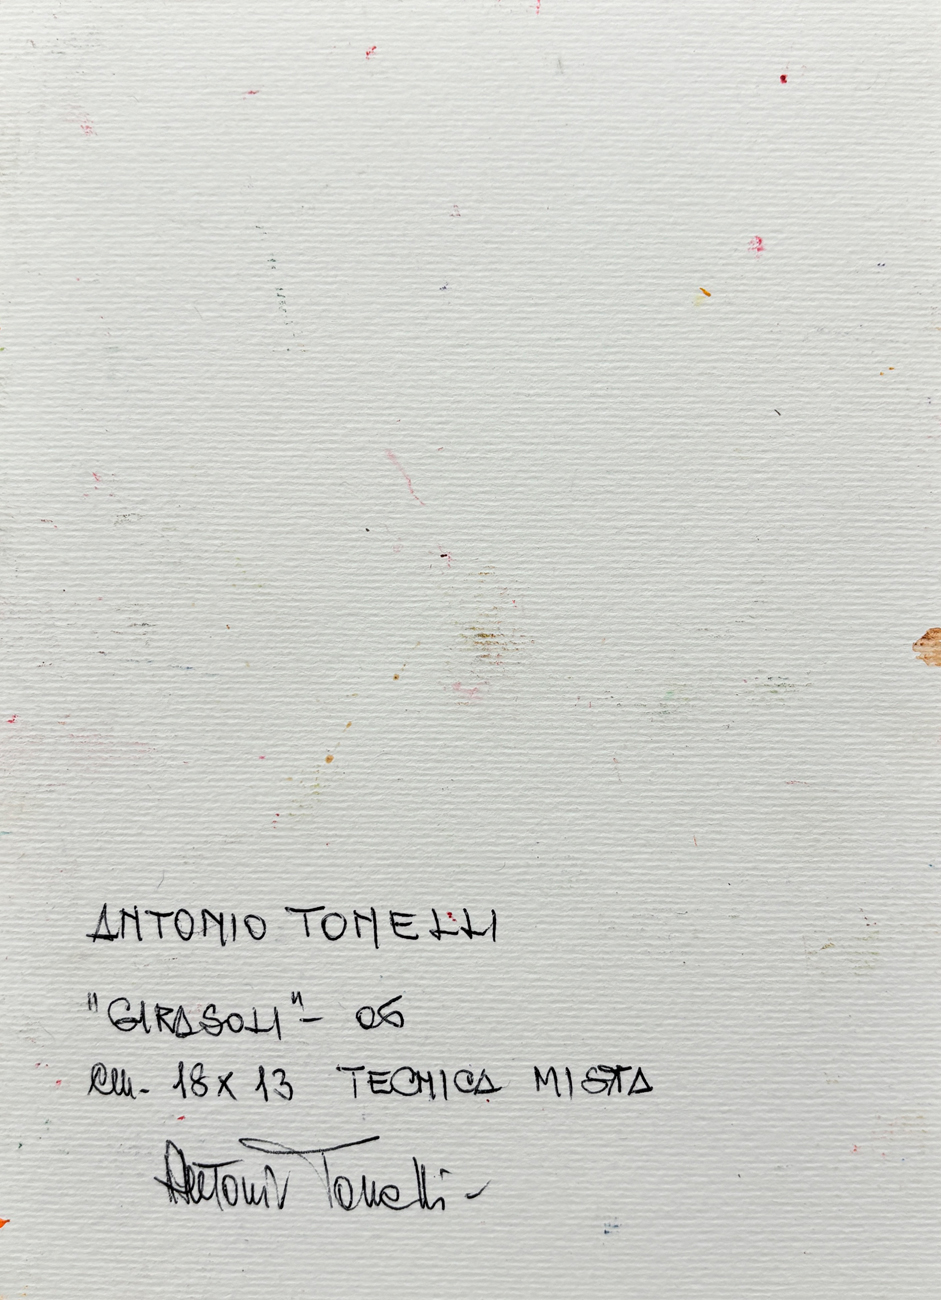 ANTONIO TONELLI
"GIRASOLI" - 06
cm. 18 x 13 TECNICA MISTA
Antonio Tonelli